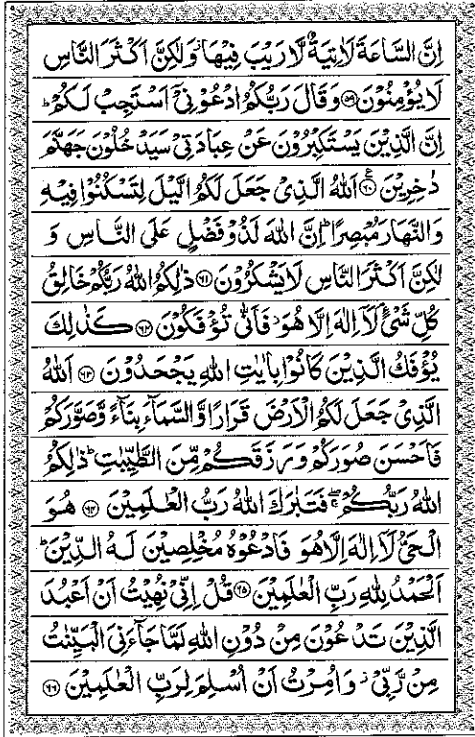 اِنَّ السَّاعَةَ لَاٰتِيَةٌ لَّا رَيْبَ فِيْهَا ۫ وَلٰكِنَّ اَكْثَرَ النَّاسِ
لَا يُؤْمِنُوْنَ ﴿۵۹﴾ وَقَالَ رَبُّكُمُ ادْعُوْنِيْۤ اَسْتَجِبْ لَـكُمْ ؕ
اِنَّ الَّذِيْنَ يَسْتَكْبِرُوْنَ عَنْ عِبَادَتِيْ سَيَدْخُلُوْنَ جَهَنَّمَ
دٰخِرِيْنَ ﴿۶۰﴾ اَللّٰهُ الَّذِيْ جَعَلَ لَكُمُ الَّيْلَ لِتَسْكُنُوْا فِيْهِ
وَالنَّهَارَ مُبْصِرًا ؕ اِنَّ اللّٰهَ لَذُوْ فَضْلٍ عَلَى النَّاسِ وَ
لٰكِنَّ اَكْثَرَ النَّاسِ لَا يَشْكُرُوْنَ ﴿۶۱﴾ ذٰلِكُمُ اللّٰهُ رَبُّكُمْ خَالِقُ
كُلِّ شَيْءٍ ۘ لَاۤ اِلٰهَ اِلَّا هُوَ ۫ فَاَنّٰى تُؤْفَكُوْنَ ﴿۶۲﴾ كَذٰلِكَ
يُؤْفَكُ الَّذِيْنَ كَانُوْا بِاٰيٰتِ اللّٰهِ يَجْحَدُوْنَ ﴿۶۳﴾ اَللّٰهُ
الَّذِيْ جَعَلَ لَكُمُ الْاَرْضَ قَرَارًا وَّالسَّمَآءَ بِنَآءً وَّصَوَّرَكُمْ
فَاَحْسَنَ صُوَرَكُمْ وَرَزَقَكُمْ مِّنَ الطَّيِّبٰتِ ؕ ذٰلِكُمُ
اللّٰهُ رَبُّكُمْ ۖۚ فَتَبٰرَكَ اللّٰهُ رَبُّ الْعٰلَمِيْنَ ﴿۶۴﴾ هُوَ
الْحَيُّ لَاۤ اِلٰهَ اِلَّا هُوَ فَادْعُوْهُ مُخْلِصِيْنَ لَهُ الدِّيْنَ ؕ
اَلْحَمْدُ لِلّٰهِ رَبِّ الْعٰلَمِيْنَ ﴿۶۵﴾ قُلْ اِنِّيْ نُهِيْتُ اَنْ اَعْبُدَ
الَّذِيْنَ تَدْعُوْنَ مِنْ دُوْنِ اللّٰهِ لَمَّا جَآءَنِيَ الْبَيِّنٰتُ
مِنْ رَّبِّيْ ۫ وَاُمِرْتُ اَنْ اُسْلِمَ لِرَبِّ الْعٰلَمِيْنَ ﴿۶۶﴾